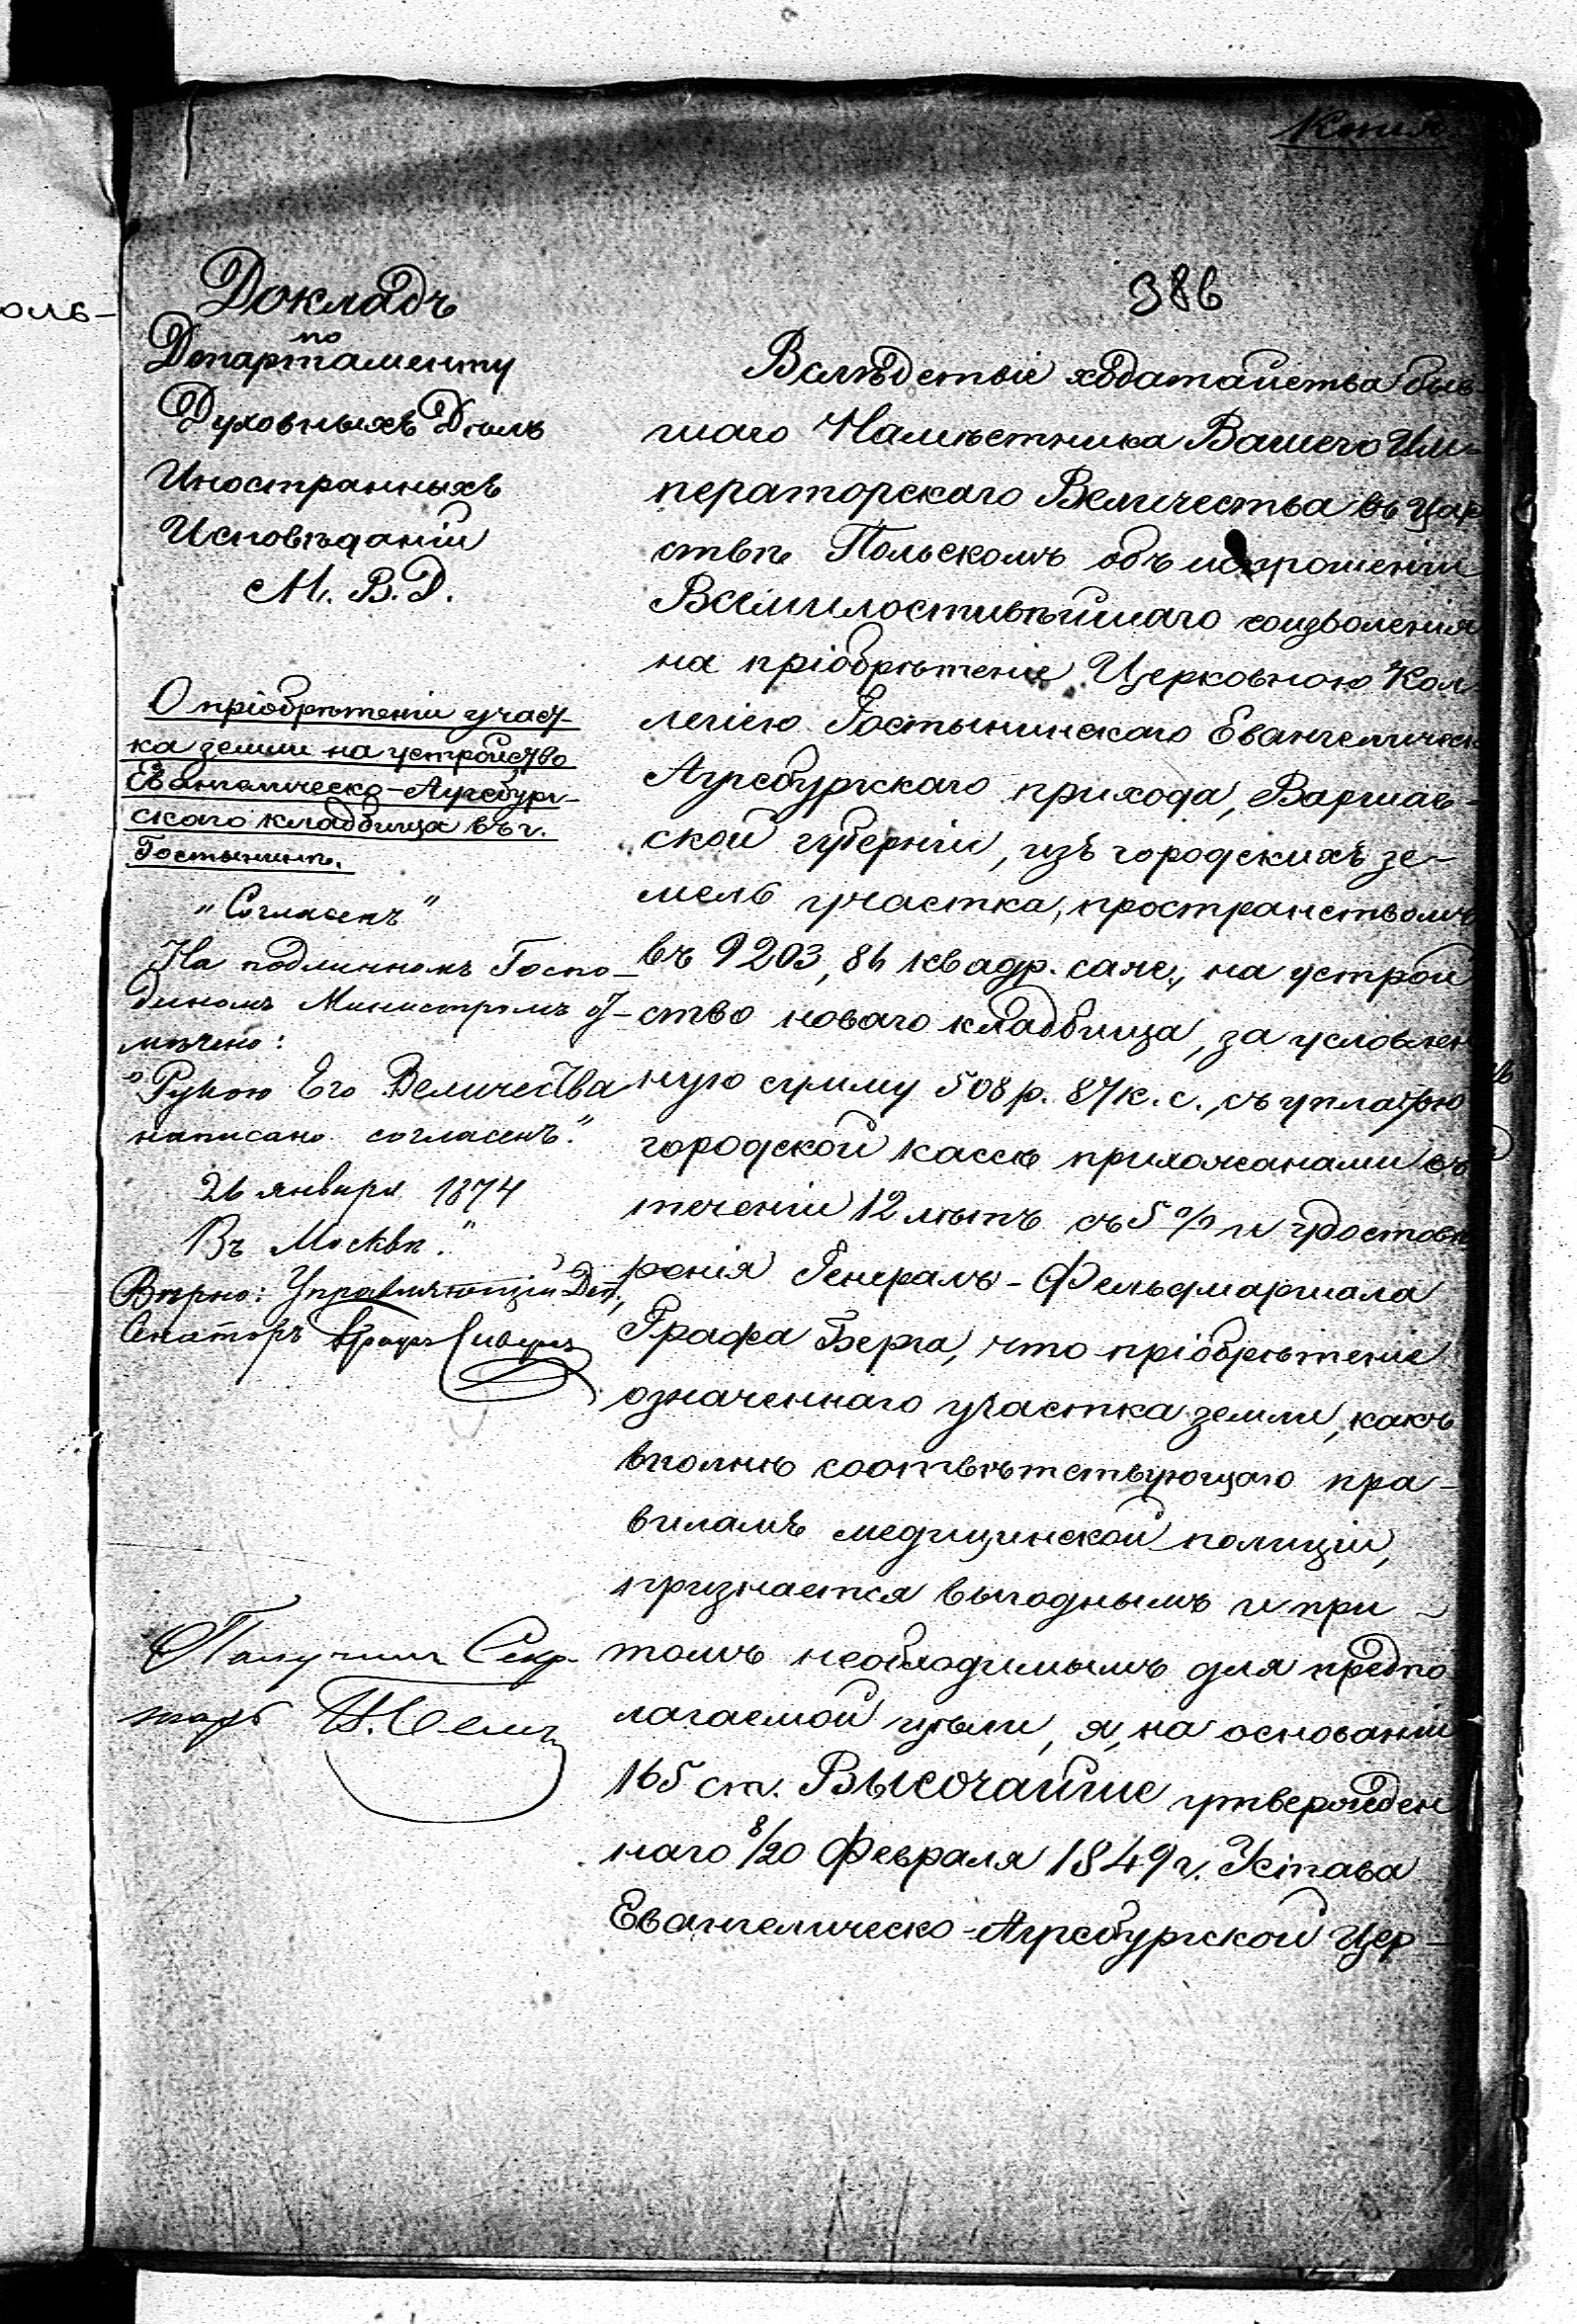 Копия
386
Докладъ
по
Департаменту
Духовныхъ Дѣлъ
Иностранныхъ
Исповѣданій
М. В. Д.
О пріобрѣтеніи участ-
ка земли на устройство
Евангелическо-Аугсбург-
скаго кладбища въ г.
Гостынинѣ.
„Согласенъ"
На подлинномъ Госпо-
диномъ Министромъ от-
мѣчено:
„Рукою Его Величества
написано согласенъ."
26 января 1874
Въ Москвѣ."
Вѣрно: Управляющій Деп.,
Сенаторъ Графъ Сиверсъ
Получилъ Секре-
тарь
Вслѣдствіе ходатайства быв-
шаго Намѣстника Вашего Им-
ператорскаго Величества въ Цар
ствѣ Польскомъ объ испрошеніи
Всемилостивѣйшаго соизволенія
на пріобрѣтеніе Церковною Кол
легіею Гостынинскаго Евангелическ
Аугсбургскаго прихода, Варшав-
ской губерніи, изъ городскихъ зе-
мель участка, пространствомъ
въ 9203,86 квадр. саж., на устрой
ство новаго кладбища, за условлен
ную сумму 508 р. 87 к. с., съ уплатою
городской кассѣ прихожанами въ
теченіи 12 лѣтъ съ 5 % и удостовѣ
ренія Генералъ-Фельдмаршала
Графа Берга, что пріобрѣтеніе
означеннаго участка земли, какъ
вполнѣ соотвѣтствующаго пра-
виламъ медицинской полиціи,
признается выгоднымъ и при-
томъ необходимымъ для предпо
лагаемой цѣли, я, на основаніи
165 ст. Высочайше утвержден
наго 8/20 Февраля 1849 г. Устава
Евангелическо-Аугсбургской Цер-